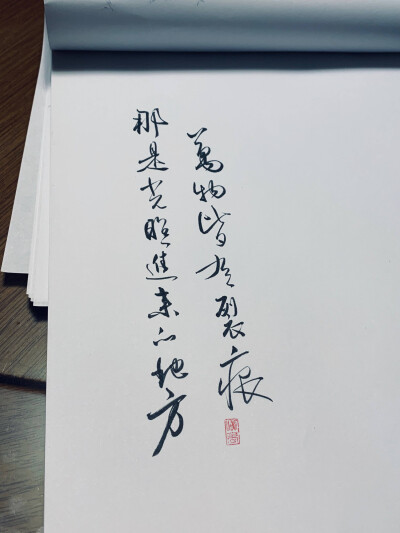 萬物皆有裂痕
那是光照進來的地方